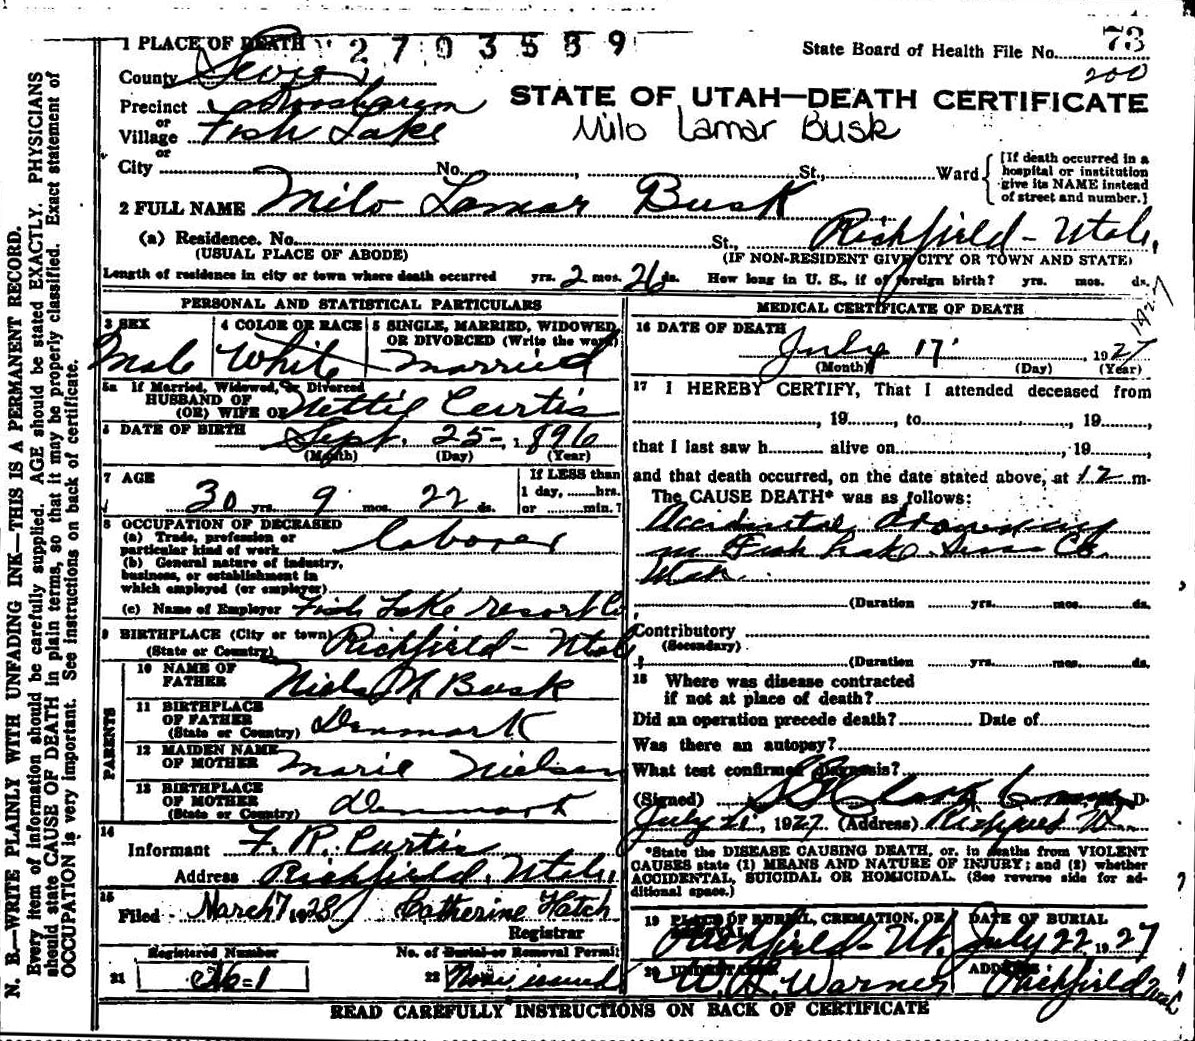 1 PLACE OF DEATH 2703589
State Board of Health File No. 73
200
County Sevier
Precinct Koosharem
or
Village Fish Lake
or
STATE OF UTAH—DEATH CERTIFICATE
Milo Lamar Busk
City No. , St., Ward
[If death occurred in a
hospital or institution
give its NAME instead
of street and number.]
2 FULL NAME Milo Lamar Busk
(a) Residence. No. St., Richfield - Utah.
(USUAL PLACE OF ABODE) (IF NON-RESIDENT GIVE CITY OR TOWN AND STATE)
Length of residence in city or town where death occurred yrs. 2 mos. 26 ds. How long in U. S., if of foreign birth? yrs. mos. ds.
1927
PERSONAL AND STATISTICAL PARTICULARS
3 SEX 4 COLOR OR RACE 5 SINGLE, MARRIED, WIDOWED,
OR DIVORCED (Write the word)
Male White married
5a If Married, Widowed, or Divorced
HUSBAND OF
(OR) WIFE OF Nettie Curtis
6 DATE OF BIRTH Sept. 25 - 1896
(Month) (Day) (Year)
7 AGE If LESS than
1 day, hrs.
30 yrs. 9 mos. 22 ds. or min.?
8 OCCUPATION OF DECEASED
(a) Trade, profession or
particular kind of work laborer
(b) General nature of industry,
business, or establishment in
which employed (or employer)
(c) Name of Employer Fish Lake resort Co
9 BIRTHPLACE (City or town)
(State or Country) Richfield - Utah
PARENTS
10 NAME OF
FATHER Niels M Busk
11 BIRTHPLACE
OF FATHER
(State or Country) Denmark
12 MAIDEN NAME
OF MOTHER Marie Nielsen
13 BIRTHPLACE
OF MOTHER
(State or Country) Denmark
14
Informant F. R. Curtis
Address Richfield, Utah.
15
Filed March 7 1928 Catherine Hatch
Registrar
Registered Number No. of Burial or Removal Permit
21 No-1 22 None issued
MEDICAL CERTIFICATE OF DEATH
16 DATE OF DEATH
July 17 , 1927
(Month) (Day) (Year)
17 I HEREBY CERTIFY, That I attended deceased from
, 19 , to , 19 ,
that I last saw h alive on , 19 ,
and that death occurred, on the date stated above, at 12 m.
The CAUSE DEATH* was as follows:
Accidental drowning
in Fish Lake Sevier Co.
Utah.
(Duration yrs. mos. ds.
Contributory
(Secondary)
(Duration yrs. mos. ds.
18 Where was disease contracted
if not at place of death?
Did an operation precede death? Date of
Was there an autopsy?
What test confirmed diagnosis?
(Signed) Clark D.
July 21, 1927 (Address)
*State the DISEASE CAUSING DEATH, or, in deaths from VIOLENT
CAUSES state (1) MEANS AND NATURE OF INJURY; and (2) whether
ACCIDENTAL, SUICIDAL OR HOMICIDAL. (See reverse side for ad-
ditional space.)
19 PLACE OF BURIAL, CREMATION, OR DATE OF BURIAL
Richfield - Ut. July 22 1927
20 UNDERTAKER ADDRESS
W. H. Warner Richfield Utah
READ CAREFULLY INSTRUCTIONS ON BACK OF CERTIFICATE
N. B.—WRITE PLAINLY WITH UNFADING INK—THIS IS A PERMANENT RECORD.
Every item of information should be carefully supplied. AGE should be stated EXACTLY. PHYSICIANS
should state CAUSE OF DEATH in plain terms, so that it may be properly classified. Exact statement of
OCCUPATION is very important. See instructions on back of certificate.